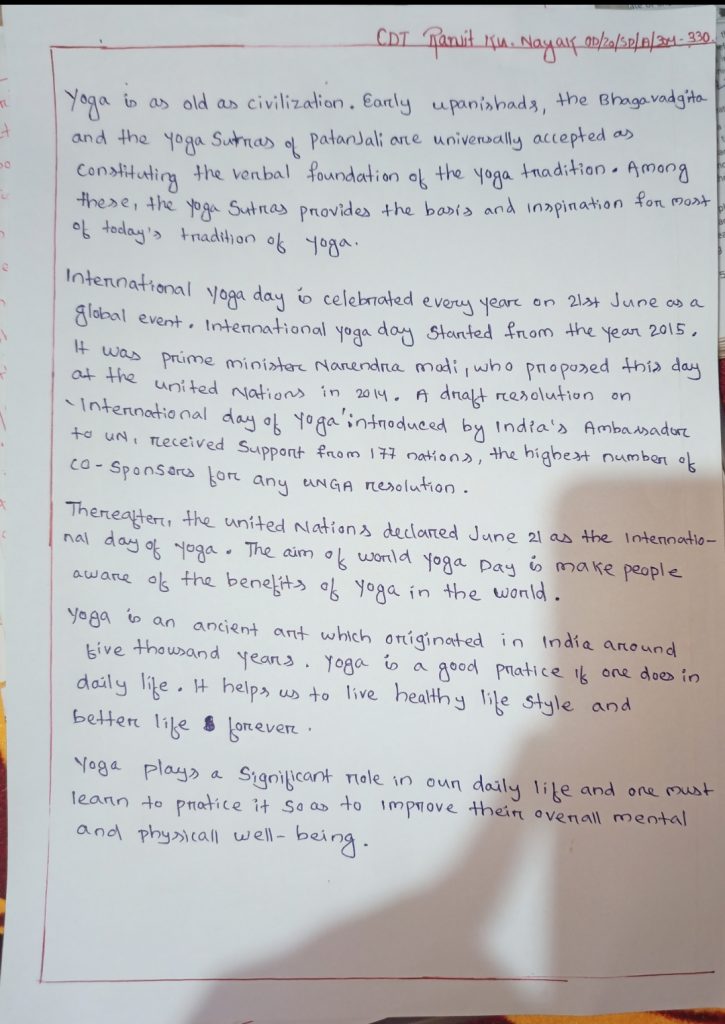 CDT Ranjit Ku. Nayak OD/20/SD/A/314-330
Yoga is as old as civilization. Early upanishads, the Bhagavadgita
and the Yoga Sutras of PatanJali are universally accepted as
constituting the verbal foundation of the yoga tradition. Among
these, the yoga Sutras provides the basis and inspiration for most
of today's tradition of yoga.
International Yoga day is celebrated every year on 21st June as a
global event. International yoga day Started from the year 2015.
It was prime minister Narendra modi, who proposed this day
at the united Nations in 2014. A draft resolution on
'International day of Yoga' introduced by India's Ambassador
to UN, received Support from 177 nations, the highest number of
co-sponsors for any UNGA resolution.
Thereafter, the united Nations declared June 21 as the Internatio-
nal day of yoga. The aim of world Yoga Day is make people
aware of the benefits of Yoga in the world.
Yoga is an ancient art which originated in India around
five thousand years. Yoga is a good pratice if one does in
daily life. It helps us to live healthy life style and
better life forever.
Yoga plays a Significant role in our daily life and one must
learn to pratice it so as to improve their overall mental
and physicall well-being.